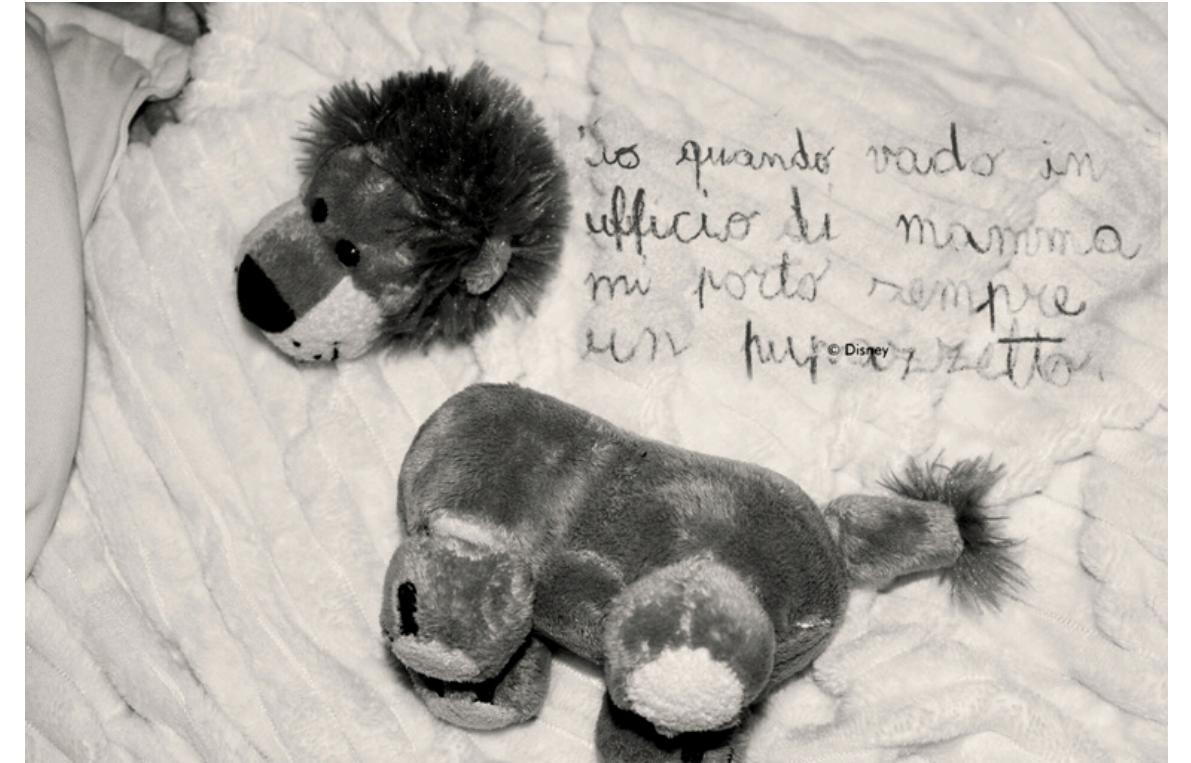 Io quando vado in
ufficio di mamma
mi porto sempre
un pupazzetto.
© Disney